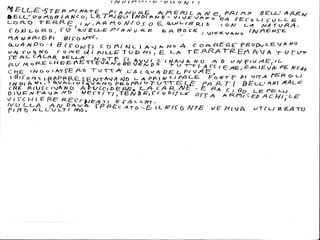 INDIANI E BISONTI
NELLE STERMINATE PIANURE AMERICANE, PRIMA DELL'ARRIVO
DELL'UOMO BIANCO, LE TRIBÙ INDIANE VIVEVANO DA SECOLI SULLE
LORO TERRE, IN ARMONIOSO EQUILIBRIO CON LA NATURA.
CON LORO, SU QUELLE PIANURE ERBOSE, VIVEVANO IMMENSE
MANDRIE DI BISONTI.
QUANDO I BISONTI COMINCIAVANO A CORRERE PRODUCEVANO
UN SUONO COME DI MILLE TUONI, E LA TERRA TREMAVA TUTTA
SE AL CALAR DELLA NOTTE SI AVVICINAVANO AD UN FIUME, IL
RUMORE CHE EMETTEVANO BEVENDO TUTTI ASSIEME, FACEVA PENSARE
CHE INGOIASSERO TUTTA L'ACQUA DEL FIUME.
I BISONTI RAPPRESENTAVANO LA PRINCIPALE FONTE DI VITA PER GLI
INDIANI, I QUALI USAVANO PROPRIO TUTTE LE PARTI DELL'ANIMALE
CHE RIUSCIVANO A UCCIDERE. LA CARNE ERA CIBO, LE PELLI
DIVENTAVANO VESTITI, TENDE, CIOTOLE, OSSA ARMI ED ACHI, LE
VISCERE RECIPIENTI E SACCHI.
NULLA ANDAVA SPRECATO E IL BISONTE VENIVA UTILIZZATO
FINO ALL'ULTIMO